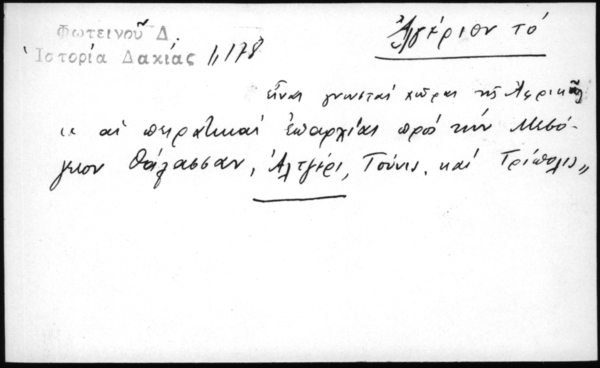 Φωτεινοῦ Δ.
Ἱστορία Δακίας 1, 178
Ἀλγέριον τό
εἶναι γνωσταί χῶραι τῆς Ἀφρικῆς
κ αἱ πειρατικαί ἐπαρχίαι πρός τήν Μεσό-
γειον θάλασσαν, Ἀλτζέρι, Τούνις, καί Τρίπολις„